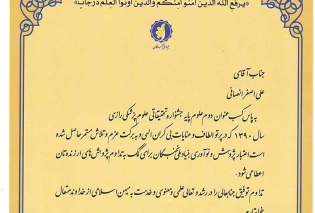 «یرفع الله الذین آمنوا منکم والذین اوتوا العلم درجات»
جناب آقای
علی اصغر انصافی
به پاس کسب عنوان دوم علوم پایه جشنواره تحقیقاتی علوم پزشکی رازی
سال ۱۳۹۰ که در پرتو الطاف و عنایات بی کران الهی و به برکت عزم و تلاش مستمر حاصل شده
است اعتبار پژوهش و نوآوری بنیاد ملی نخبگان برای کمک به تداوم پژوهش های ارزنده تان
اعطا می شود.
تداوم توفیق جنابعالی را در رشد و تعالی علمی و معنوی و خدمت به میهن اسلامی از خداوند متعال
خواستاریم